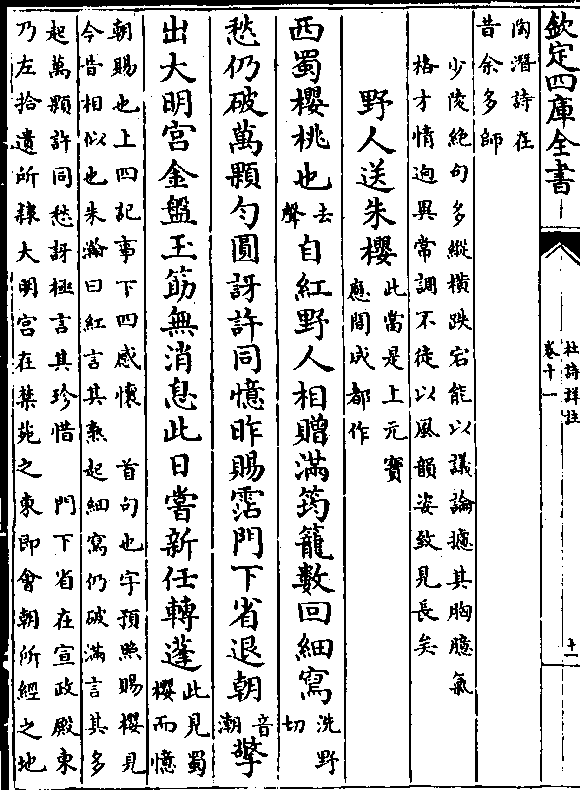 欽定四庫全書
杜詩詳註
卷十一
十一
陶潛詩在
昔余多師
少陵絶句多縱横跌宕能以議論攄其胸臆氣
格才情迥異常調不徒以風韻姿致見長矣
野人送朱櫻
此當是上元寶
應間成都作
西蜀櫻桃也
去
聲
自紅野人相贈滿筠籠數回細寫
洗野
切
愁仍破萬顆匀圓訝許同憶昨賜霑門下省退朝
音
潮
擎
出大明宫金盤玉筯無消息此日嘗新任轉蓬
此見蜀
櫻而憶
朝賜也上四記事下四感懷 首句也字預照賜櫻見
今昔相似也朱瀚曰紅言其熟起細寫仍破滿言其多
起萬顆許同愁訝極言其珍惜 門下省在宣政殿東
乃左拾遺所隸大明宫在禁苑之東即會朝所經之地